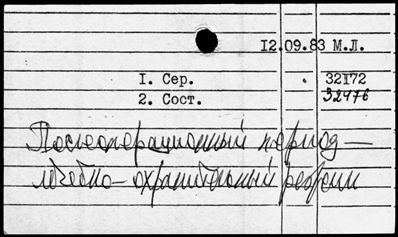 12.09.83 М.Л.
1. Сер. 32172
2. Сост. 32476
Послеоперационный период —
лечебно-охранительный режим